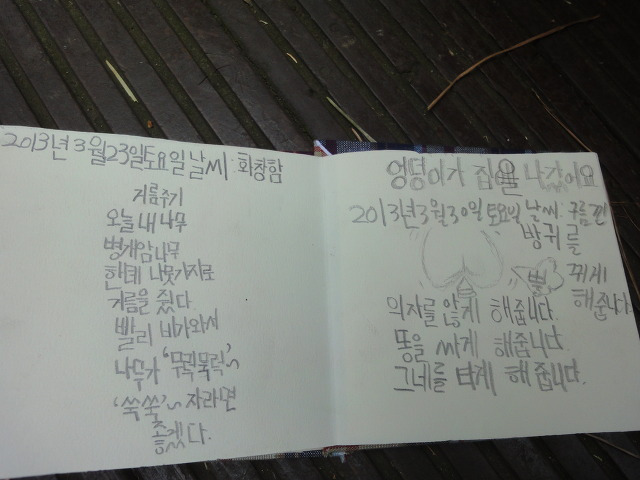 2013년 3월 23일 토요일 날씨: 화창함
거름주기
오늘 내 나무
벙게암나무
한테 나뭇가지로
거름을 줬다.
빨리 비가와서
나무가 '무럭무럭'~
'쑥쑥'~ 자라면
좋겠다.
엉덩이가 집을 나갔어요
2013년 3월 30일 토요일 날씨: 구름낀
방귀를
뿔 뀌게
해줍니다
의자를 앉게 해줍니다.
똥을 싸게 해줍니다.
그네를 타게 해줍니다.